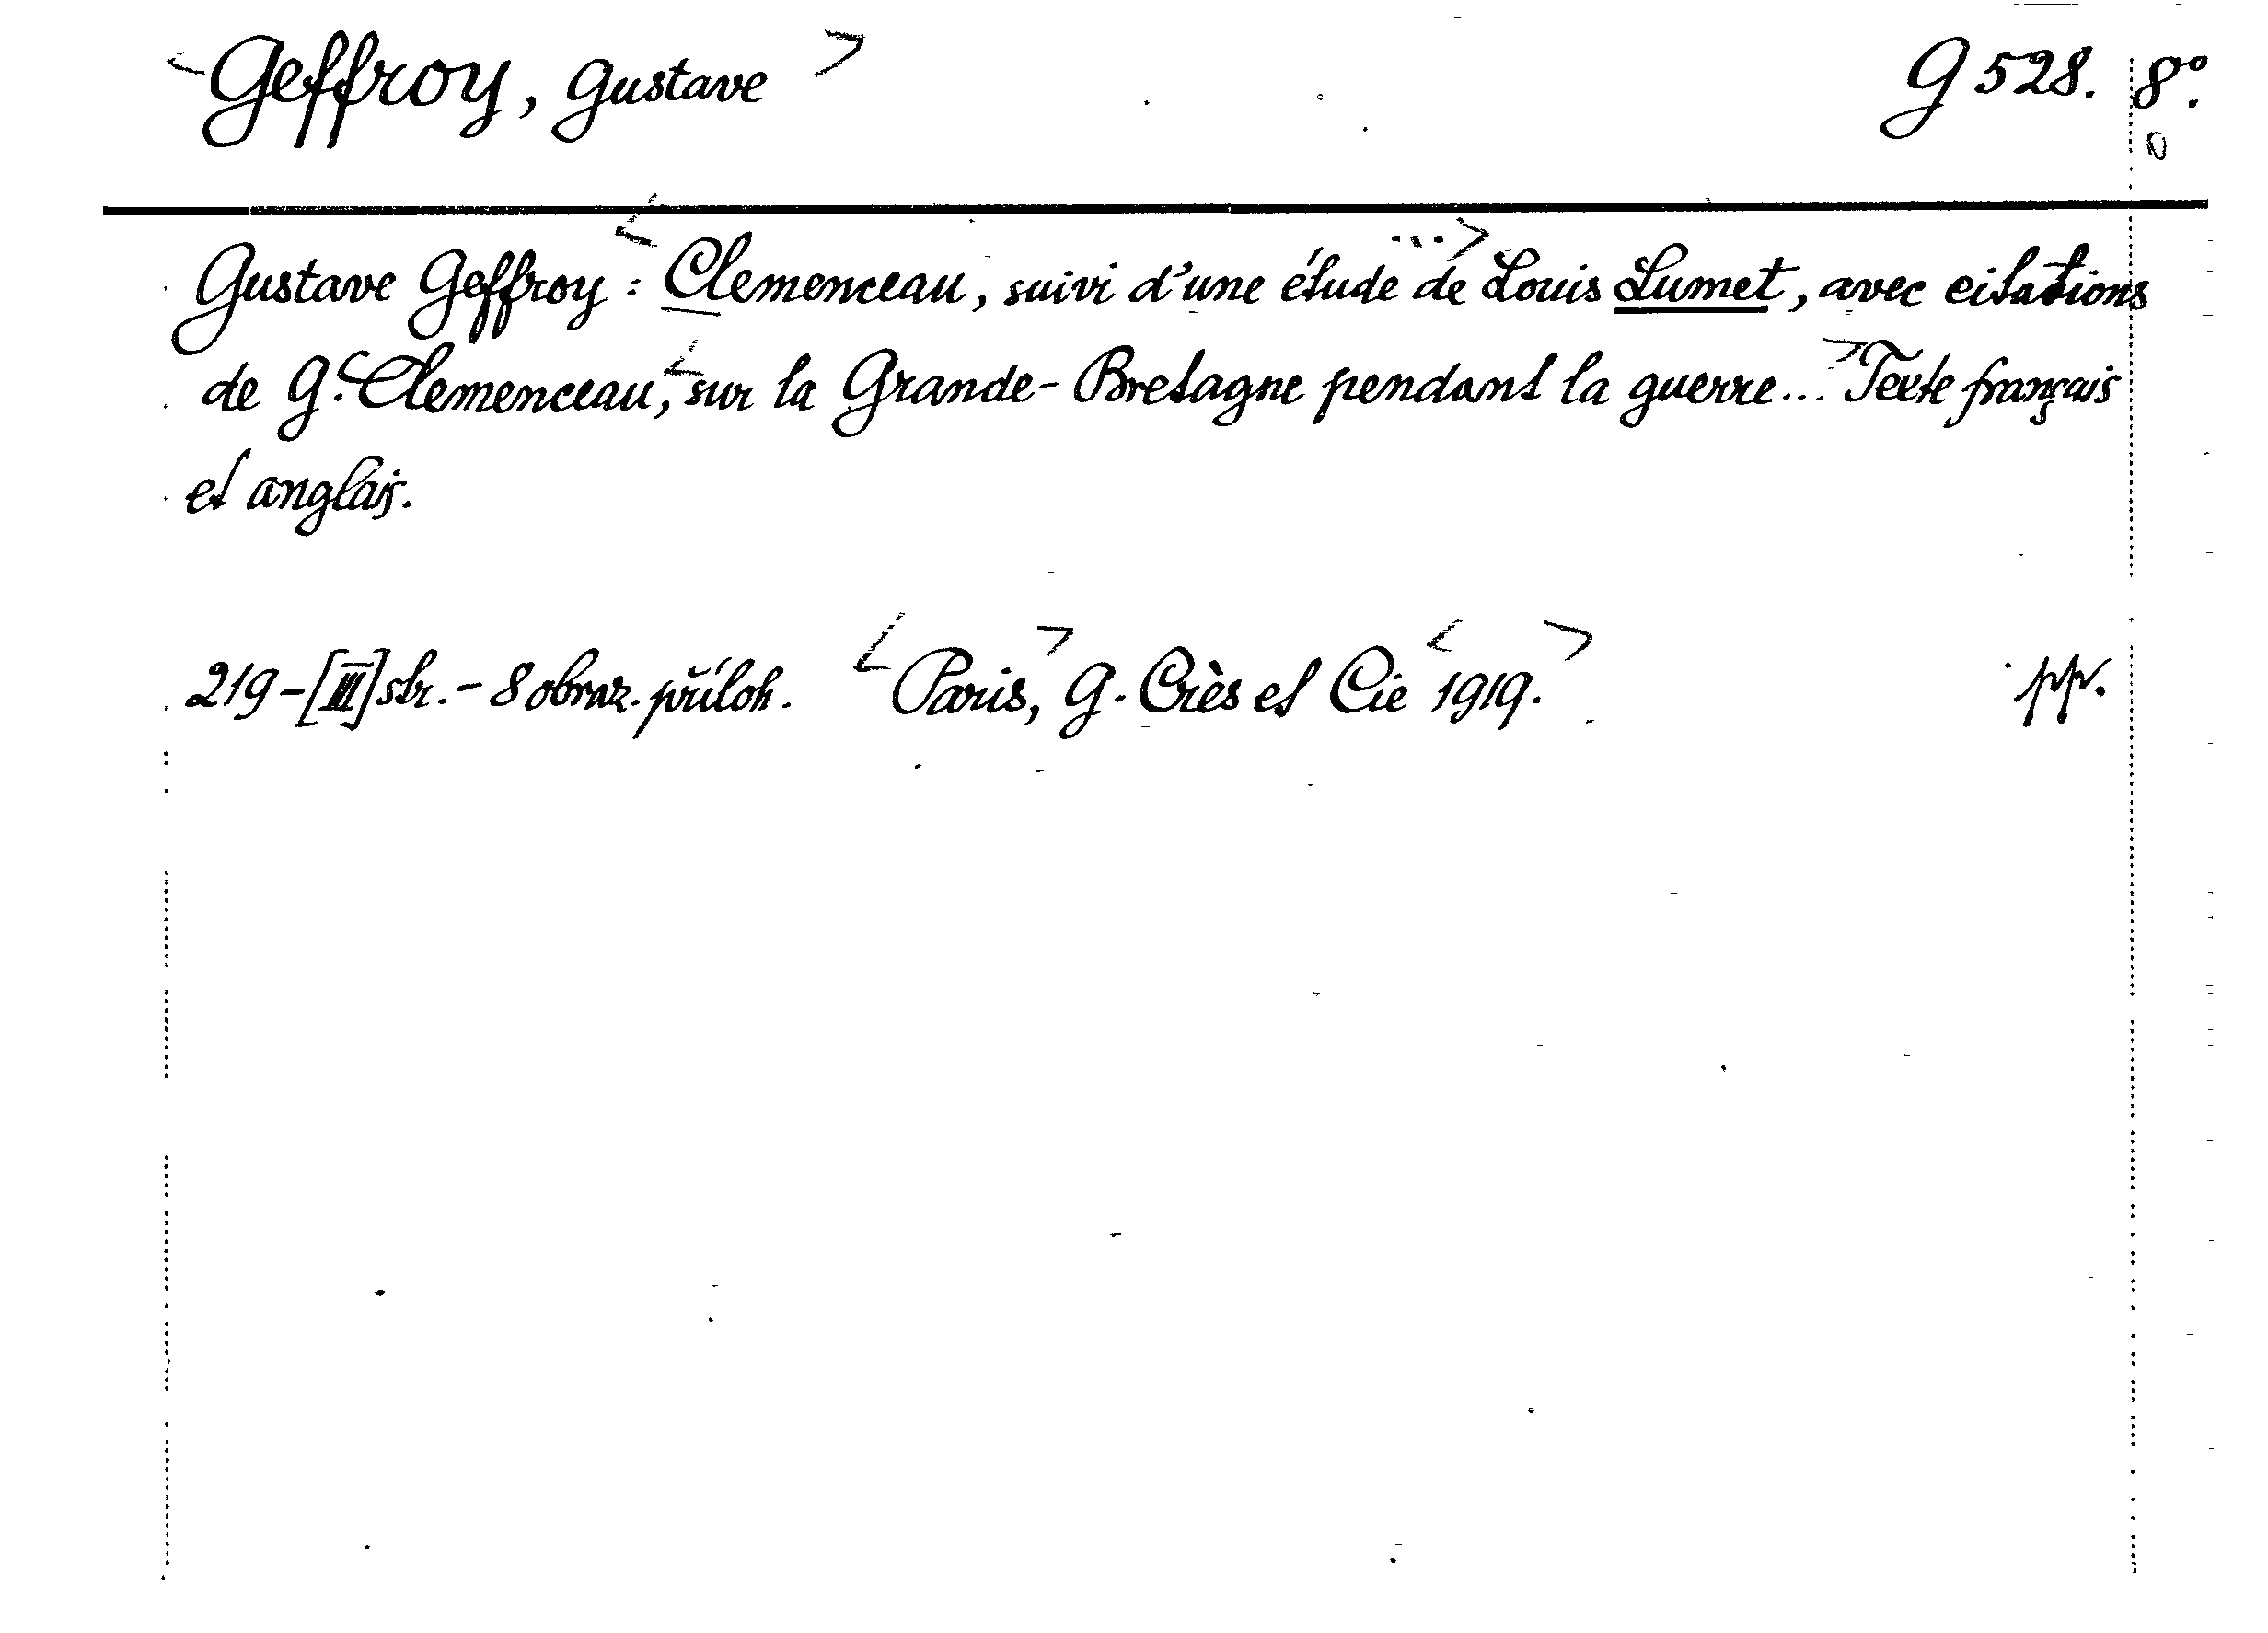 <Geffroy, Gustave> G 528. 8°.
Gustave Geffroy : <Clemenceau, suivi d'une étude de ...> Louis Lumet, avec citations
de G. Clemenceau, <sur la Grande-Bretagne pendant la guerre... >Texte français
et anglais.
219-[III] str. - 8 obraz. příloh. <Paris,> G. Crès et Cie <1919.> pp.